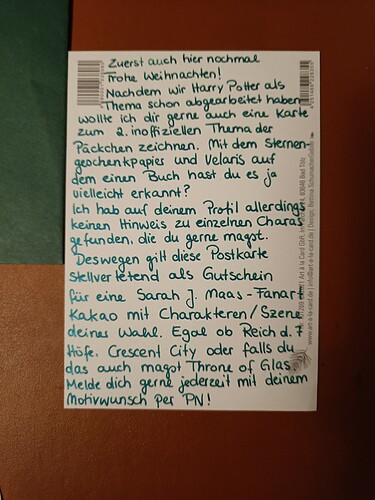 Zuerst auch hier nochmal
Frohe Weihnachten!
Nachdem wir Harry Potter als
Thema schon abgearbeitet haben
wollte ich dir gerne auch eine Karte
zum 2. inoffiziellen Thema der
Päckchen zeichnen. Mit dem Sternen-
geschenkpapier und Velaris auf
dem einen Buch hast du es ja
vielleicht erkannt?
Ich hab auf deinem Profil allerdings
keinen Hinweis zu einzelnen Charas
gefunden, die du gerne magst.
Deswegen gilt diese Postkarte
stellvertretend als Gutschein
für eine Sarah J. Maas-Fanart
Kakao mit Charakteren/Szene
deiner Wahl. Egal ob Reich d. 7
Höfe, Crescent City oder falls du
das auch magst Throne of Glas.
Melde dich gerne jederzeit mit deinem
Motivwunsch per PN!
www.art-a-la-card.de | info@art-a-la-card.de | Design: Bettina Schumacher
Art à la Card GbR, 83646 Bad Tölz